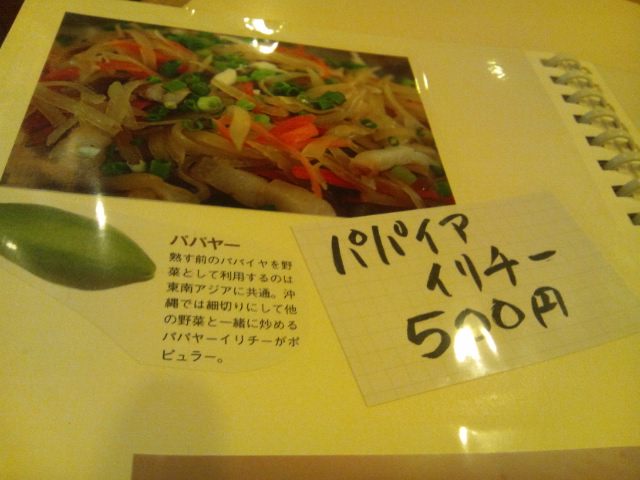 パパヤー
熟す前のパパイヤを野
菜として利用するのは
東南アジアに共通。沖
縄では細切りにして他
の野菜と一緒に炒める
パパヤーイリチーがポ
ピュラー。
パパイア
イリチー
500円